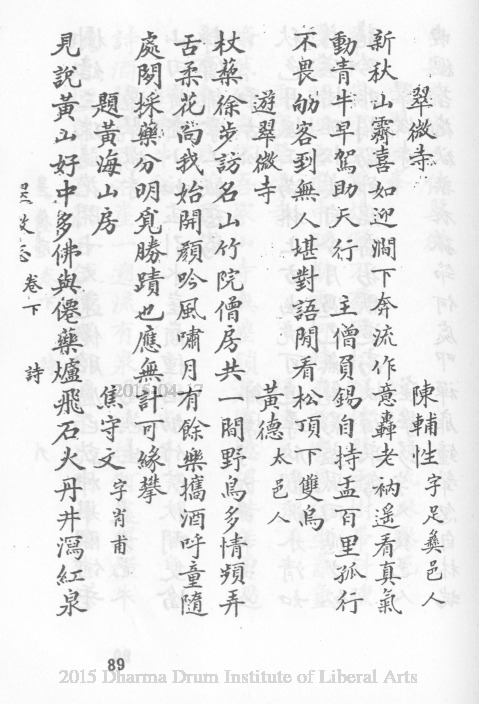 翠微寺 陳輔性 字足彝邑人
新秋山霽喜如迎澗下奔流作意轟老衲遙看真氣
動青牛早駕助天行 主僧員錫自持盂百里孤行
不畏劬客到無人堪對語閑看松頂下雙鳧
遊翠微寺 黃德 太邑人
杖藜徐步訪名山竹院僧房共一間野鳥多情頻弄
舌柔花尚我始開顏吟風嘯月有餘樂攜酒呼童隨
處閑採藥分明覓勝蹟也應無計可緣攀
題黃海山房 焦守文 字肖甫
見說黃山好中多佛與僊藥爐飛石火丹井瀉紅泉
卷下 詩
89
2015 Dharma Drum Institute of Liberal Arts